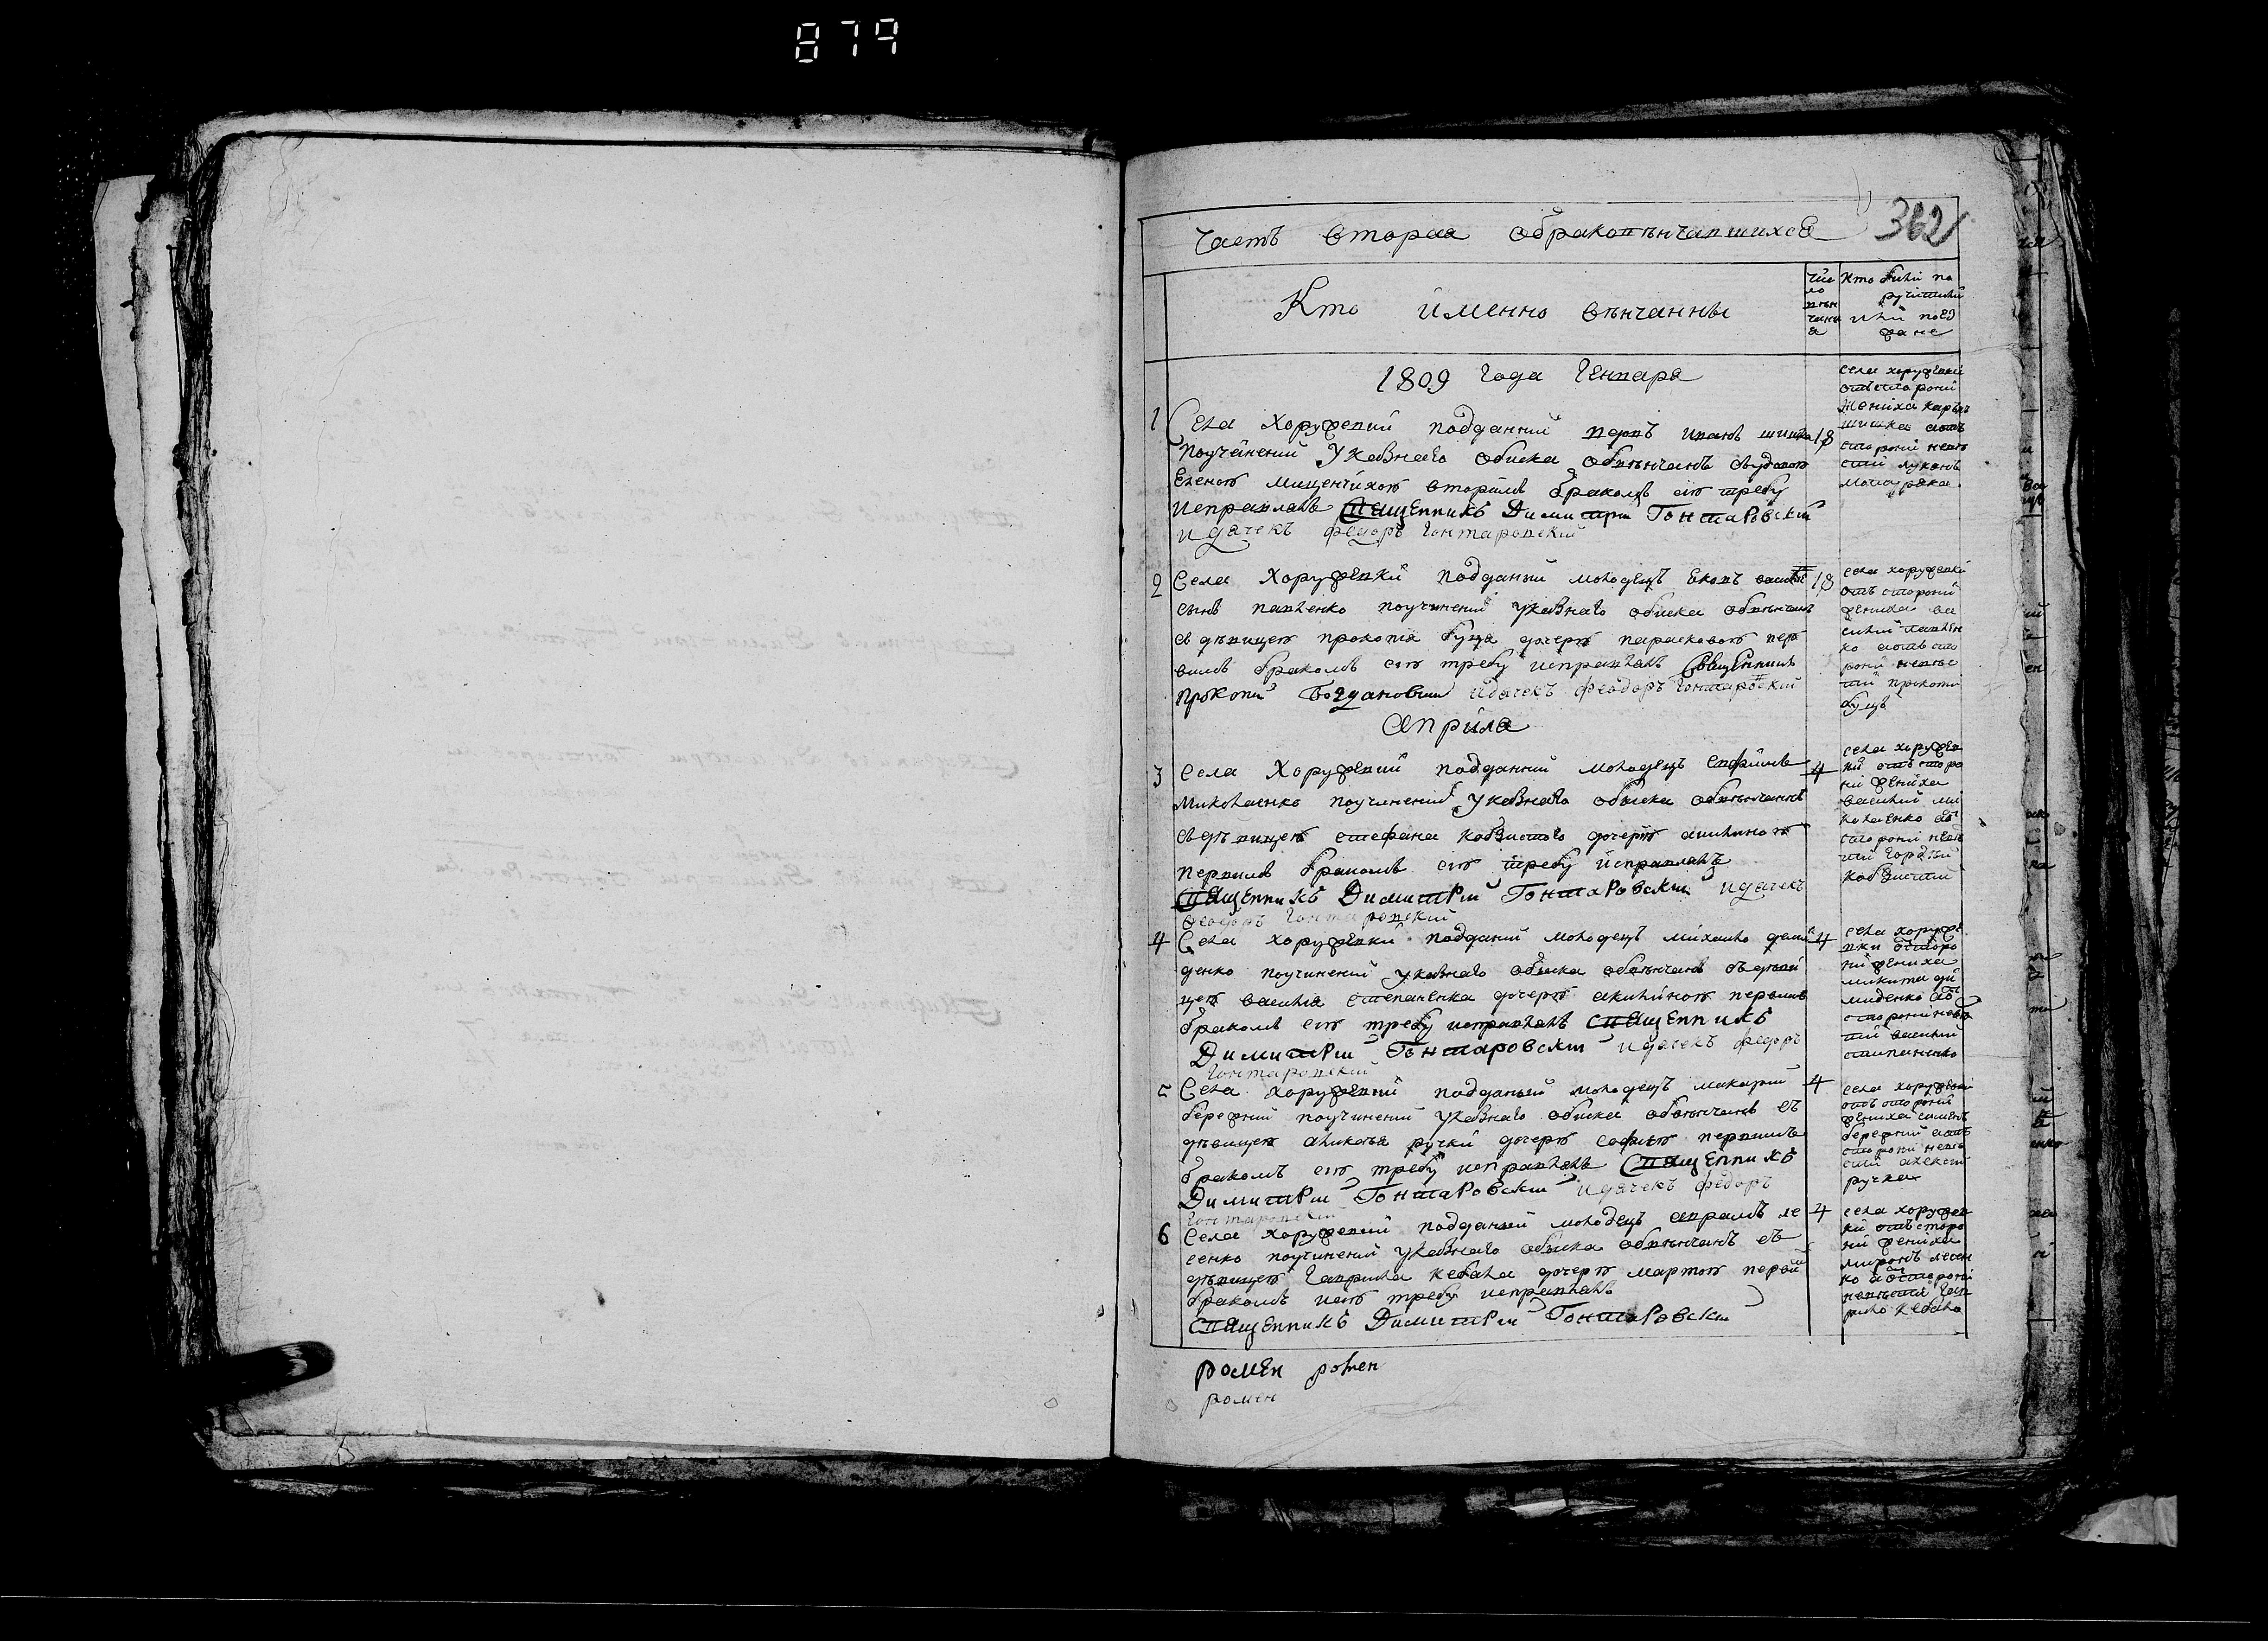 879
362
Часть вторая обраковѣнчавшихся
Кто именно вѣнчанны
Чис
ло
вѣн
чани
я
Кто были по
ручители
или поез
жане
1809 года Генваря
1 Села Хоружевки подданный вдовъ иванъ шишка 18
поучинении указнаго обиска обвѣнчанъ съ вдовою
Еленою мищенчихою вторимъ бракомъ сию требу
исправлялъ Священникъ Димитрий Гонтаровский
и дячекъ федоръ гонтаровский
села хоружевки
отъ стороны
жениха карпъ
шишка а отъ
стороны невѣ
сти лукянъ
2 Села Хоружевки подданный молодецъ Яковъ 18
сынъ павленко поучинении указнаго обиска обвѣнчанъ
съ дѣвицею прокопия буца дочерю парасковою пер
вимъ бракомъ сию требу исправлялъ Священникъ
Прокопий Богдановичъ и дячекъ феодоръ Гонтаровский
села хоружевки
отъ стороны
жениха ва
силий павлен
ко а отъ сто
роны невѣс
ти прокопий
буцъ
Априля
3 Села Хоружевки подданный молодецъ Евфимъ 4
Миколаенко поучинении указнаго обиска обвѣнчанъ
съ дѣвицею стефана кобзистого дочерю акилиною
первимъ бракомъ сию требу исправлялъ
Священникъ Димитрий Гонтаровский и дячекъ
Феодоръ Гонтаровский
села хоружев
ки отъ сторо
ни жениха
василий ми
колаенко а отъ
стороны невѣс
ти гордий
кобзистий
4 Села хоружевки подданий молодецъ михайло деми 4
денко поучинении указнаго обиска обвѣнчанъ съ дѣви
цею василия степаненка дочерю акилиною первимъ
бракомъ сию требу исправлялъ Священникъ
Димитрий Гонтаровский и дячекъ федоръ
Гонтаровский
села хоруже
вки отсторо
ни жениха
микита ди
миденко а от
стороны невѣс
ти василий
стипаненко
5 Села хоружевки подданый молодецъ макарий 4
бережний поучинении указнаго обиска обвѣнчанъ съ
дѣвицею ручки дочерю софиею первимъ
бракомъ сию требу исправлялъ Священникъ
Димитрий Гонтаровский и дячекъ федоръ
Гонтаровский
села хоружевки
отъ стороны
жениха
бережний а отъ
стороны невѣ
сти алексий
ручка
6 Села хоружевки подданый молодецъ аврамъ ле 4
сенко поучинении указнаго обиска обвѣнчанъ съ
дѣвицею гаврила кебала дочерю мартою первим
бракомъ сию требу исправлялъ
Священникъ Димитрий Гонтаровский
села хоружев
ки отъ сторо
ни жениха
миронъ лесен
ко а отстороны
невѣсти гав
рило кебало
ромен ромен
ромен